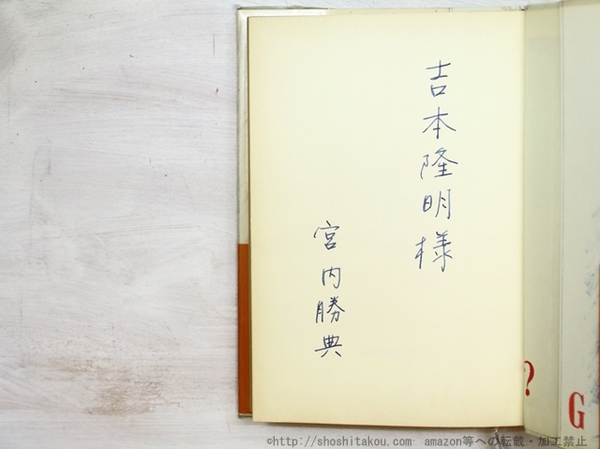 吉本隆明様
宮内勝典
?
G
©http://shoshitakou.com amazon等への転載・加工禁止